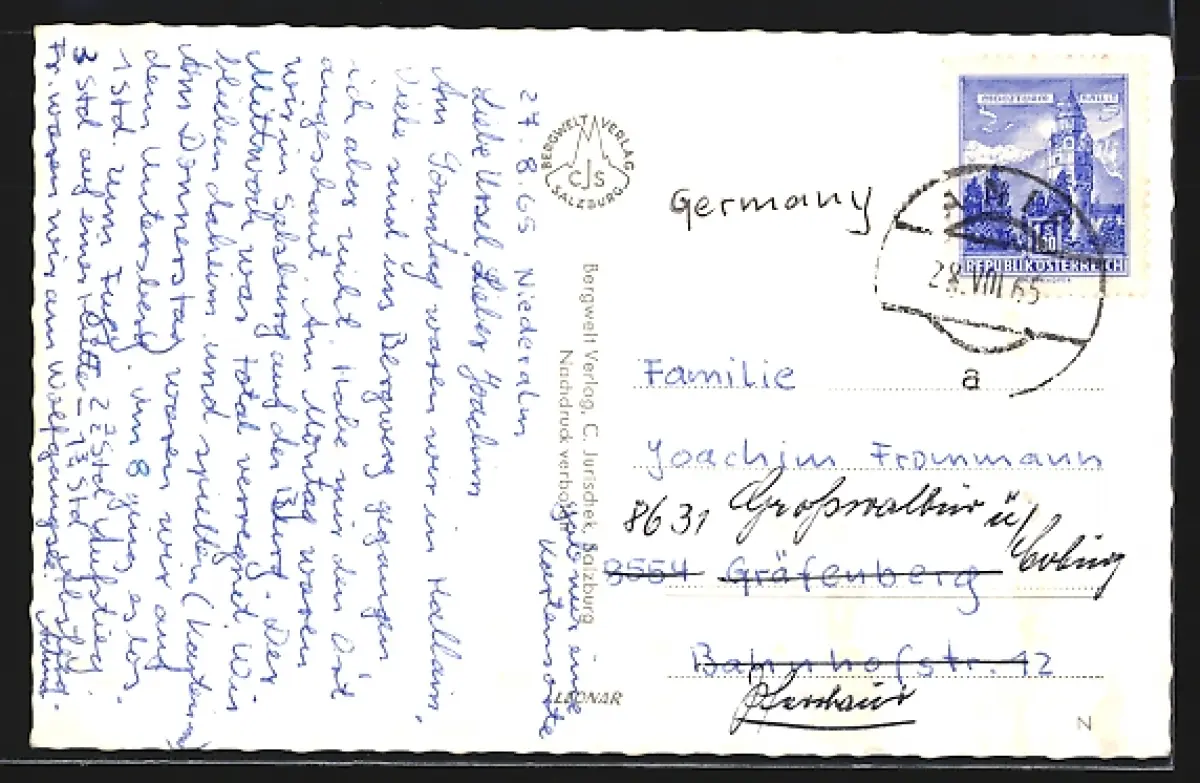 27.8.65 Niederalm
Liebe Ursel, Lieber Joachim
Am Sonntag waren wir in Hallein.
Viele sind ins Bergwerg gegangen
ich aber nicht. Habe mir den Ort
angeschaut. Am Montag waren
wir in Salzburg auf der Burg. Der
Mittwoch war total verregnet. Wir
blieben daheim und spielten (Karten)
Am Donnerstag waren wir auf
dem Untersberg. um 8 ging es los.
1 Std. zum Fuß, 2½ Std Aufstieg
3 Std auf einer Hütte – 1½ Std Abstieg
Fr. waren wir am Wolfgangsee.
Habe nur eine
Kartensorte
BERGWELT VERLAG
CJS
SALZBURG
Bergwelt Verlag, C. Jurischek, Salzburg
Nachdruck verboten
LEONAR
Germany
REPUBLIK ÖSTERREICH
28.VIII.65
a
Familie
Joachim Frommann
8631 Großwalbur ü/
Coburg
8554 Gräfenberg
Bahnhofstr. 12
Pfarrhaus
N